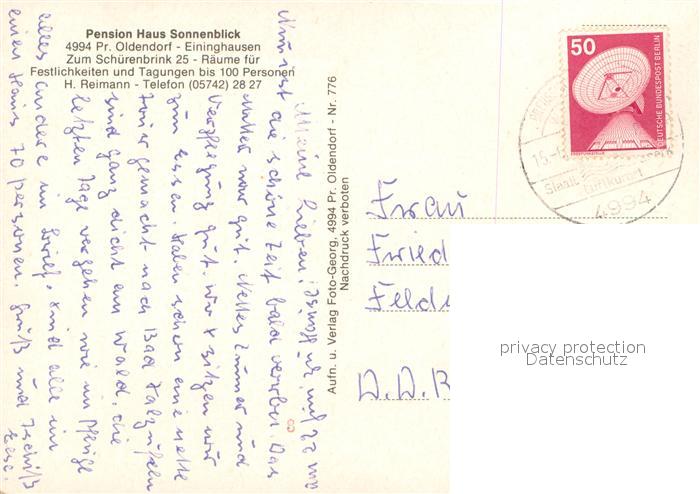 Pension Haus Sonnenblick
4994 Pr. Oldendorf - Eininghausen
Zum Schürenbrink 25 - Räume für
Festlichkeiten und Tagungen bis 100 Personen
H. Reimann - Telefon (05742) 28 27
Meine Lieben!
Nun ist die schöne Zeit bald vorbei. Das
Wetter war gut. Nettes Zimmer und
Verpflegung gut. Wir sitzen nur
zum Essen. Haben schon eine nette
Tour gemacht nach Bad Salzuflen
sind ganz dicht am Wald, die
letzten Tage vergehen wie im Fluge
alles andere im Brief, sind alle in
einem Haus 70 Personen. Gruß und Tschüß
Aufn. u. Verlag Foto-Georg, 4994 Pr. Oldendorf - Nr. 776
Nachdruck verboten
50
DEUTSCHE BUNDESPOST BERLIN
Luftkurort
4994
Frau
Fried
Felde
D.D.R
privacy protection
Datenschutz